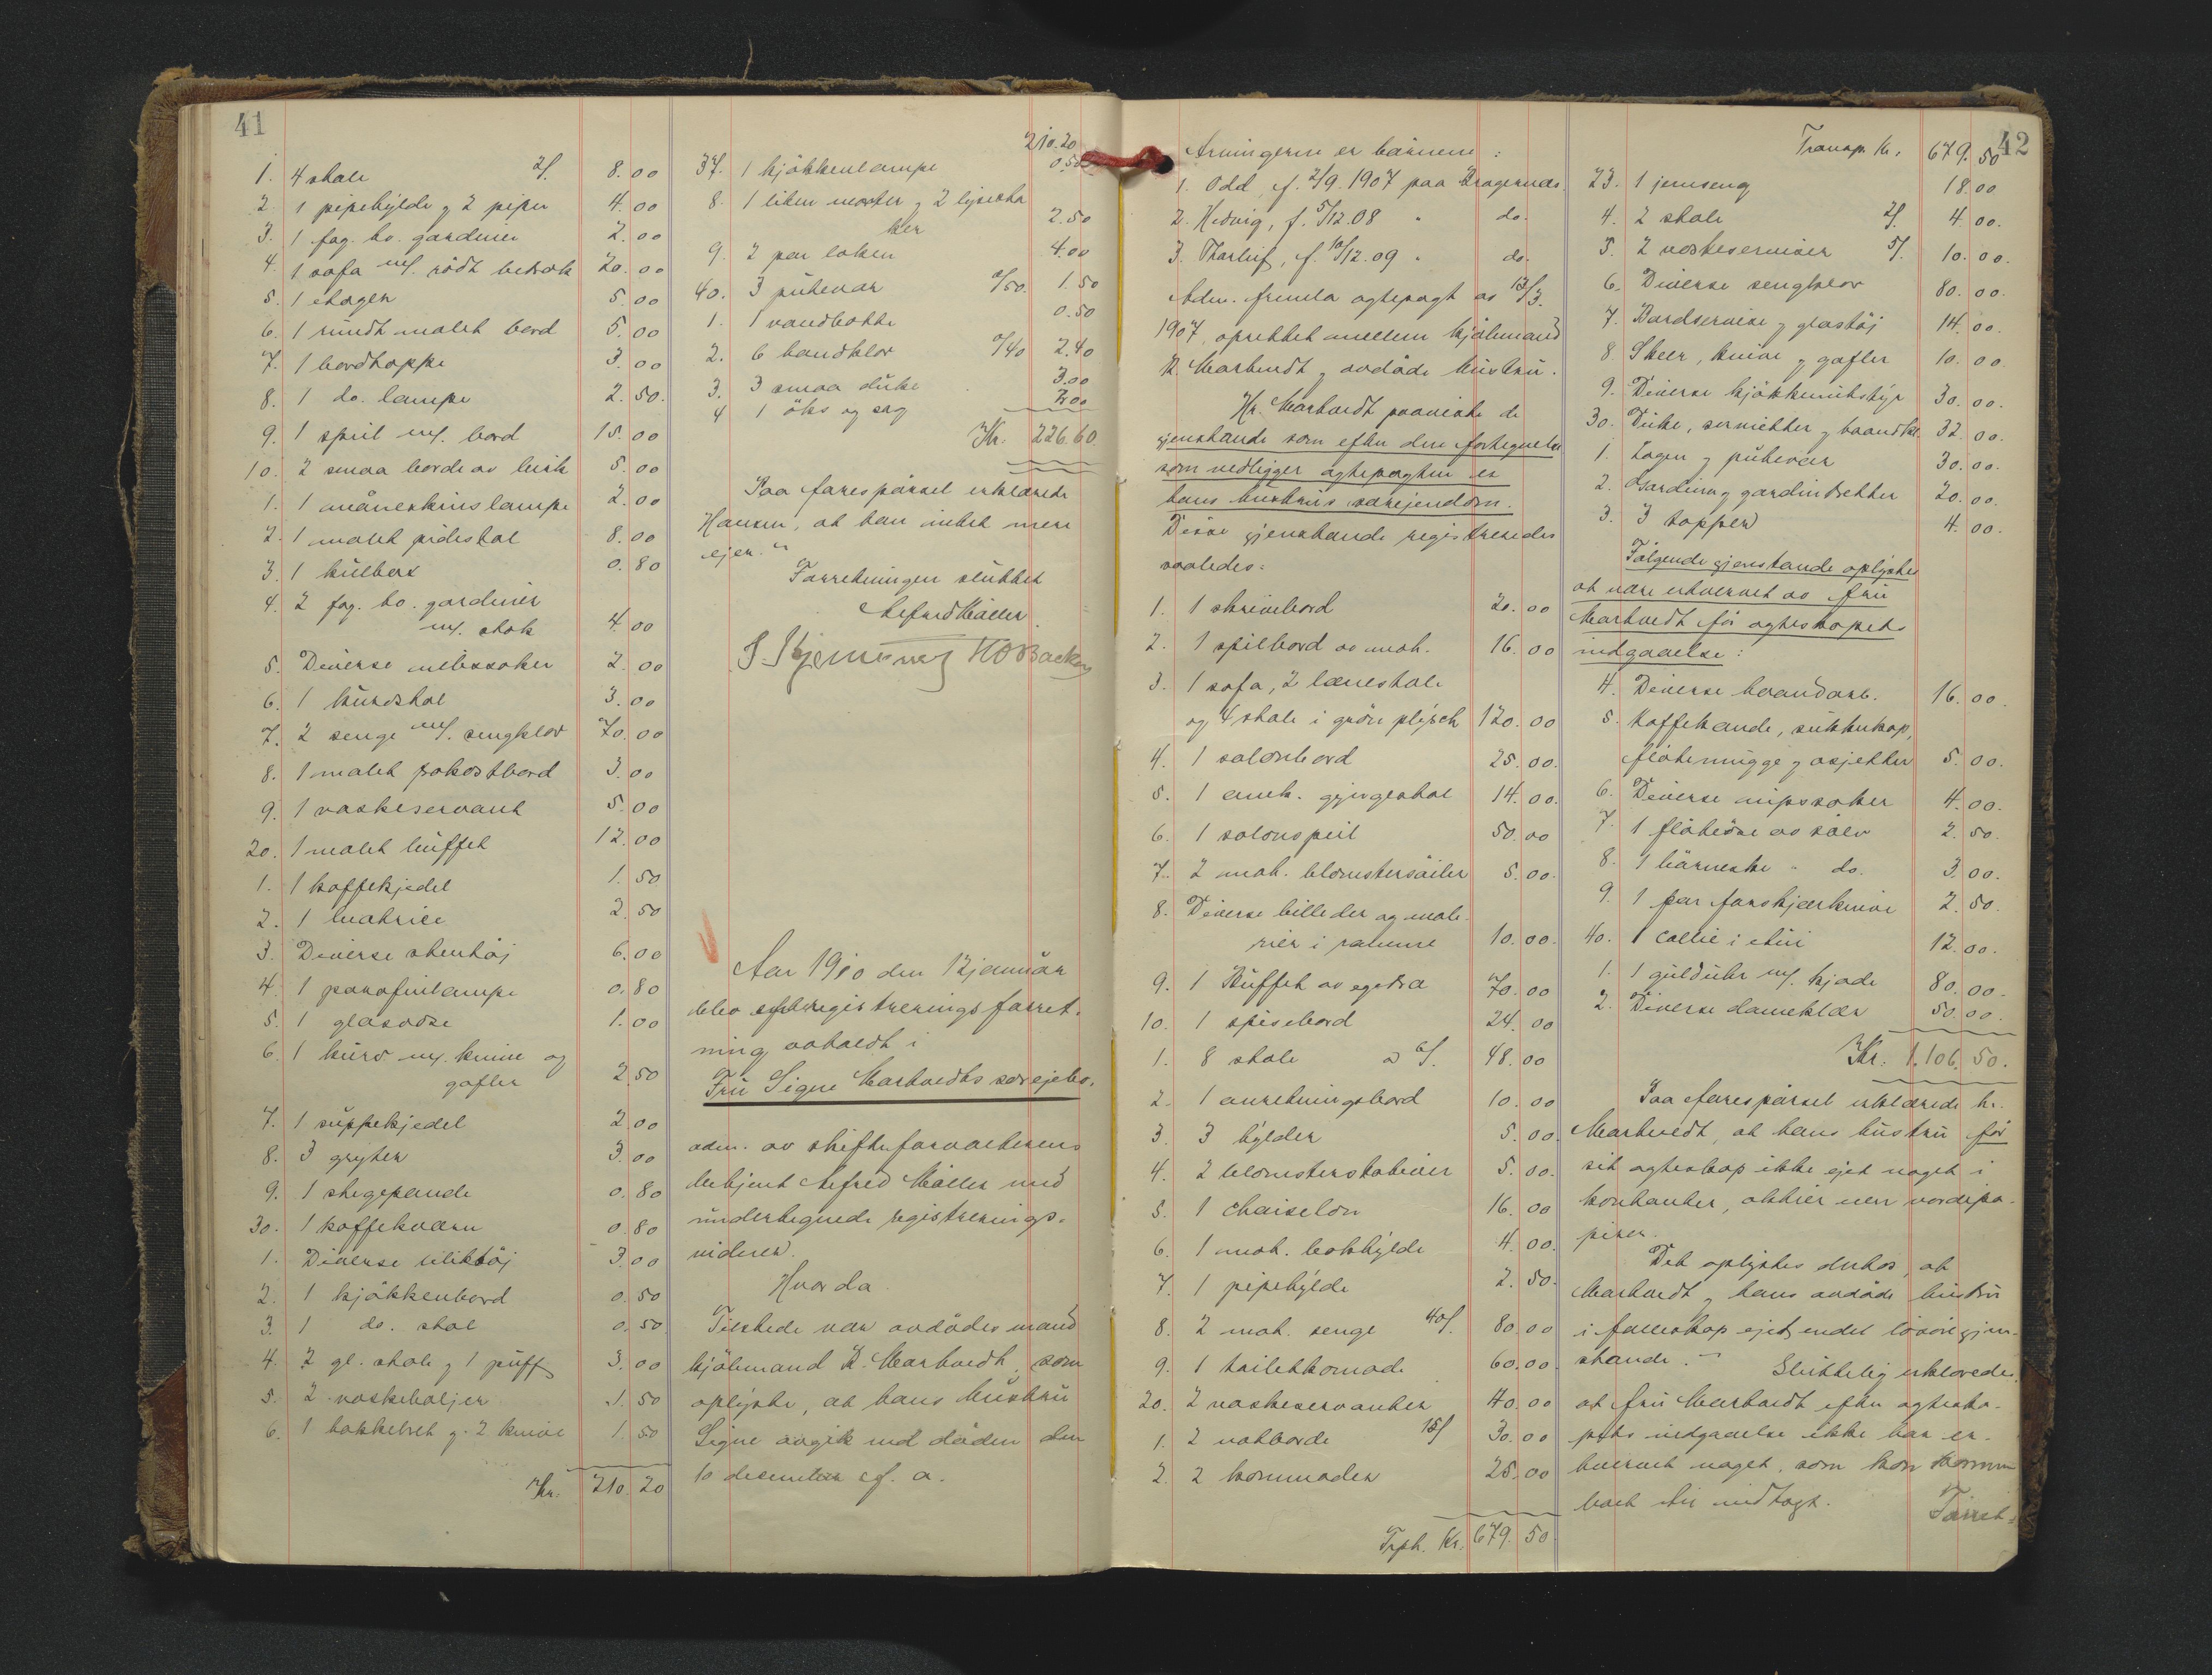 41
1. 4 stole 2/. 8.00
2. 1 pipehylde og 2 piper 4.00
3. 1 fag. bo. gardiner 2.00
4. 1 sofa m/. rödt betræk 20.00
5. 1 etager 5.00
6. 1 rundt malet bord 5.00
7. 1 bordteppe 3.00
8. 1 do. lampe 2.50.
9. 1 speil m/. bord 15.00
10. 2 smaa borde av birk 5.00
1. 1 måneskinslampe 2.00
2. 1 malet pidestal 8.00
3. 1 kulbox 0.80
4. 2 fag. bo. gardiner
m/. stok 4.00
5. Diverse nibssaker 2.00
6. 1 kurvstol 3.00
7. 2 senge m/. sengklær 70.00
8. 1 malet frokostbord 3.00
9. 1 vaskeservant 5.00
20. 1 malet buffet 12.00
1. 1 kaffekjedel 1.50
2. 1 2.50
3. Diverse stentöj 6.00
4. 1 parafinlampe 0.80
5. 1 glasvase 1.00
6. 1 kurv m/. knive og
gafler 2.50
7. 1 suppekjedel 2.00
8. 3 gryter 3.00
9. 1 stegepande 0.80
30. 1 kaffekværn 0.80
1. Diverse bliktöj 3.00
2. 1 kjökkenbord 0.50
3. 1 do. stol 0.50
4. 2 gl. stole og 1 puff 3.00
5. 2 vaskebaljer 1.50
6. 1 hakkebret og 2 knive 1.50
Kr. 210.20
210.20
37. 1 kjökkenlampe 0.50
8. 1 liten morter og 2 lysesta
ker 2.50
9. 2 par laken 4.00
40. 3 putevar 0/50. 1.50
1. 1 vandbötte 0.50
2. 6 haandklær 0/40 2.40
3. 3 smaa duke 3.00
4 1 öks og sag 2.00
Kr. 226.60
Paa forespörsel erklærede
Hansen, at han intet mere
ejer."
Forretningen sluttet
Alfred Möller.
Aar 1910 den 12 januar
blev registreringsforret-
ning avholdt i
Fru Signe Marhvedts særejebo.
adm. av skifteforvalterens
betjent Alfred Möller med
undertegnede registrerings-
vidner.
Hvorda
Tilstede var avdödes mand
kjöbmand K. Marhvedt, som
oplyste, at hans hustru
Signe avgik ved döden den
10 december f. a.
42
Arvingerne er barnene:
1. Odd, f. 2/9. 1907 paa Bragernæs.
2. Hedvig, f. 5/12.08 " do.
3. Thorleif, f. 10/12.09 " do.
Adm. fremla ægtepagt av 13/3.
1907, oprettet mellem kjöbmand
K. Marhvedt og avdöde hustru.
Hr. Marhvedt paaviste de
gjenstande som efter den fortegnelse
som vedligger ægtepagten er
hans hustrus særejendom.
Disse gjenstande registreredes
saaledes:
1. 1 skrivebord 20.00
2. 1 spilbord av mah. 16.00
3. 1 sofa, 2 lænestole
og 4 stole i grön plysch 120.00
4. 1 salonbord 25.00.
5. 1 amk. gyngestol 14.00.
6. 1 salonspeil 50.00
7. 2 mah. blomstersöiler 5.00.
8. Diverse billeder og male-
rier i ramme 10.00.
9. 1 Buffet av egetræ 70.00
10. 1 spisebord 24.00
1. 8 stole a 6/. 48.00
2. 1 anretningsbord 10.00
3. 3 hylder 5.00.
4. 2 blomsterstativer 5.00.
5. 1 chaiselon 16.00
6. 1 mah. bokhylde 4.00.
7. 1 pipehylde 2.50.
8. 2 mah. senge 40/. 80.00
9. 1 toilettkomode 60.00.
20. 2 vaskeservanter 40.00
1. 2 natborde 15/ 30.00
2. 2 kommoder 25.00
Trpt. Kr. 679.50.
Transp. Kr. 679.50
23. 1 jernseng 18.00
4. 2 stole 2/. 4.00.
5. 2 vaskeserviser 5/. 10.00.
6. Diverse sengklær 80.00.
7. Bordservise og glastöj 14.00.
8. Skeer, knive og gafler 10.00.
9. Diverse kjökkenutstyr 30.00.
30. Duke, servietter og haandkl. 32.00.
1. Lagen og putevar 30.00.
2. Gardiner og gardinbretter 20.00.
3. 3 tepper 4.00.
Fölgende gjenstande oplystes
at være erhvervet av fru
Marhvedt för ægteskapets
indgaaelse:
4. Diverse haandarb. 16.00.
5. Kaffekande, sukkerkop,
flötemugge og asjetter 5.00.
6. Diverse nipssaker 4.00.
7. 1 flöteöse av sölv 2.50.
8. 1 barneske " do. 3.00.
9. 1 par forskjærknive 2.50.
40. 1 collie i etui 12.00.
1. 1 guldur m/. kjede 80.00.
2. Diverse dameklær 50.00.
Kr. 1.106.50.
Paa forespörsel erklærede hr.
Marhvedt, at hans hustru för
sit ægteskap ikke ejet noget i
kontanter, aktier eller værdipa-
pirer.
Det oplystes derhos, at
Marhvedt og hans avdöde hustru
i fælleskap ejet endel lösöregjen-
stande. — Sluttelig erklæredes,
at fru Marhvedt efter ægteska-
pets indgaaelse ikke har er-
hvervet noget, som kan komme
boet til indtægt. Forret-